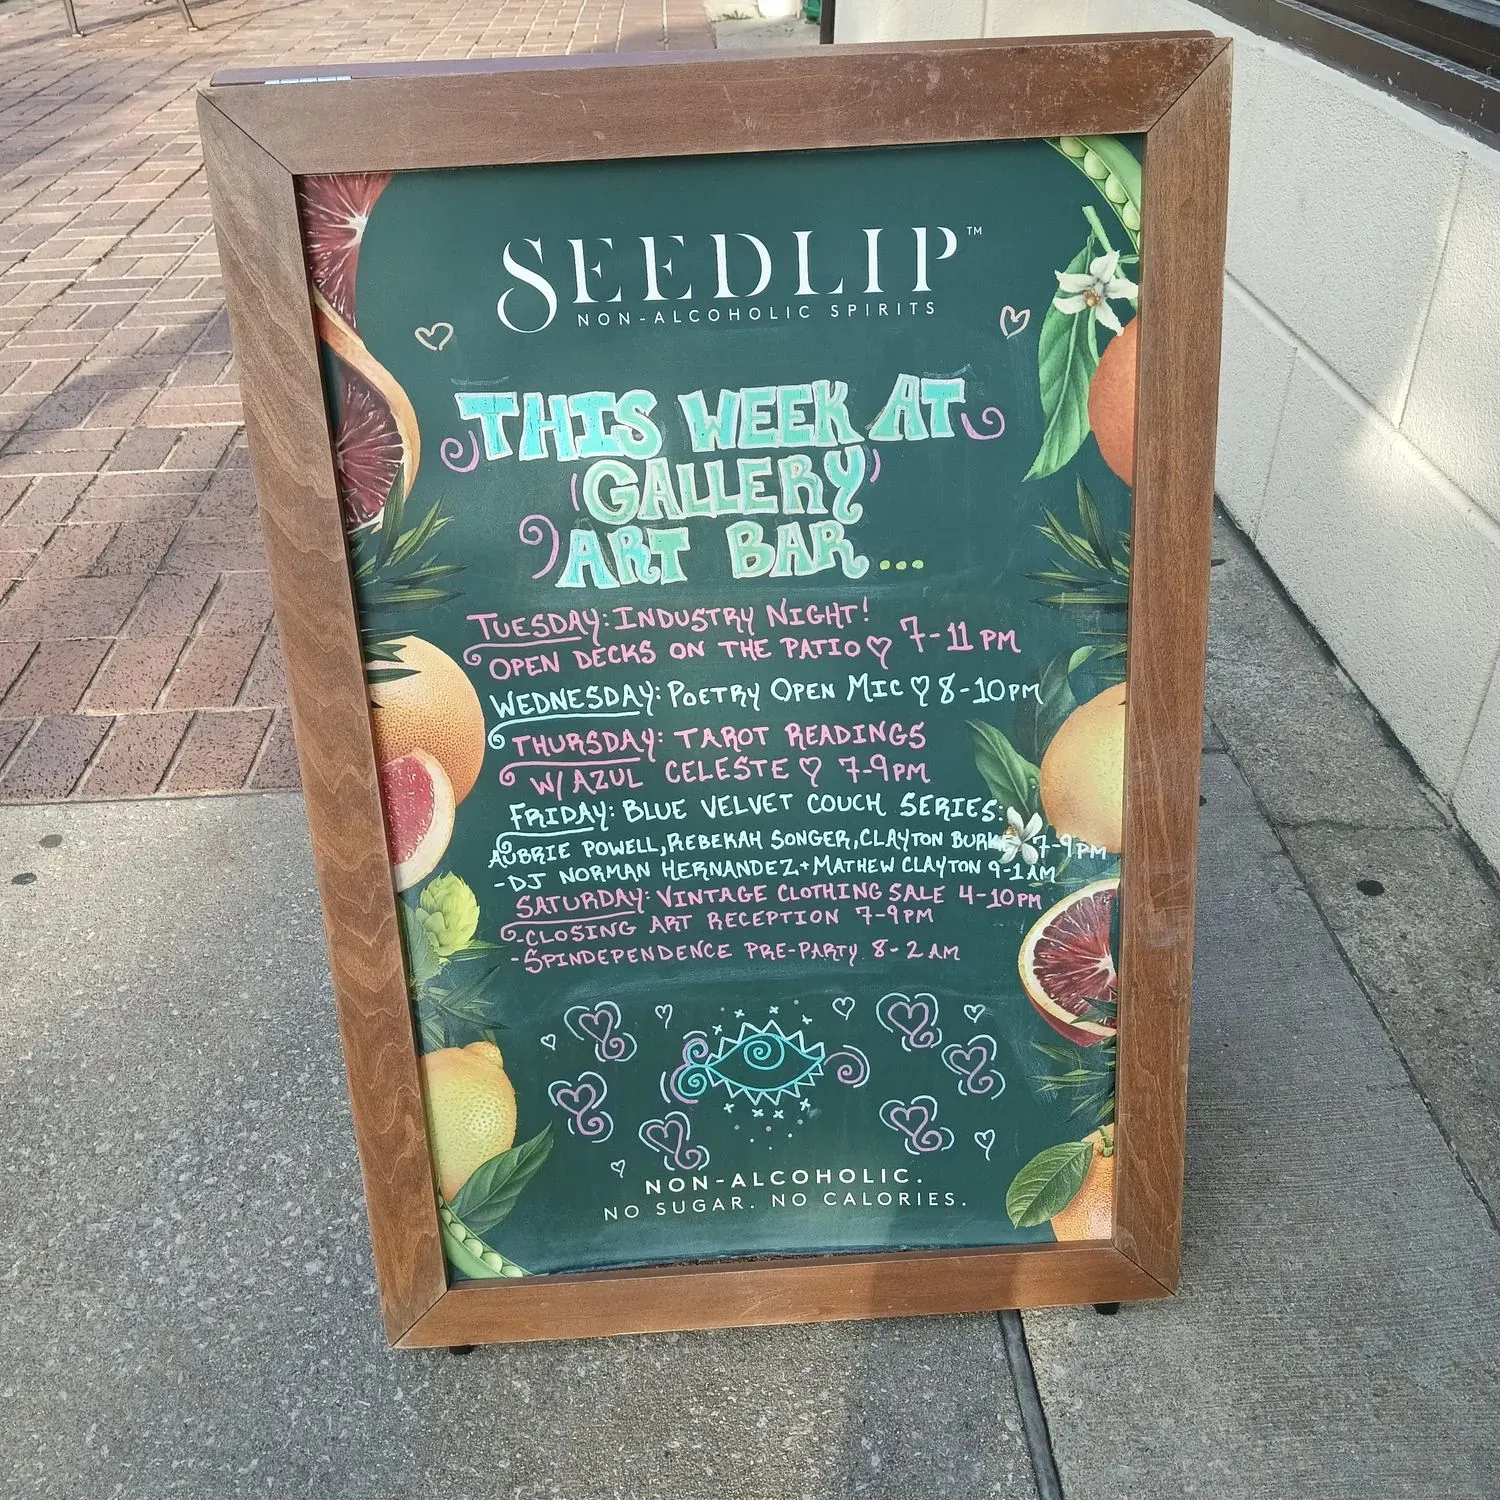 SEEDLIP™
NON-ALCOHOLIC SPIRITS
THIS WEEK AT
GALLERY
ART BAR...
TUESDAY: INDUSTRY NIGHT!
OPEN DECKS ON THE PATIO ♡ 7-11 PM
WEDNESDAY: POETRY OPEN MIC ♡ 8-10PM
THURSDAY: TAROT READINGS
W/ AZUL CELESTE ♡ 7-9PM
FRIDAY: BLUE VELVET COUCH SERIES:
AUBRIE POWELL, REBEKAH SONGER, CLAYTON BURKE 7-9PM
-DJ NORMAN HERNANDEZ + MATHEW CLAYTON 9-1AM
SATURDAY: VINTAGE CLOTHING SALE 4-10PM
-CLOSING ART RECEPTION 7-9PM
-SPINDEPENDENCE PRE-PARTY 8-2AM
NON-ALCOHOLIC.
NO SUGAR. NO CALORIES.